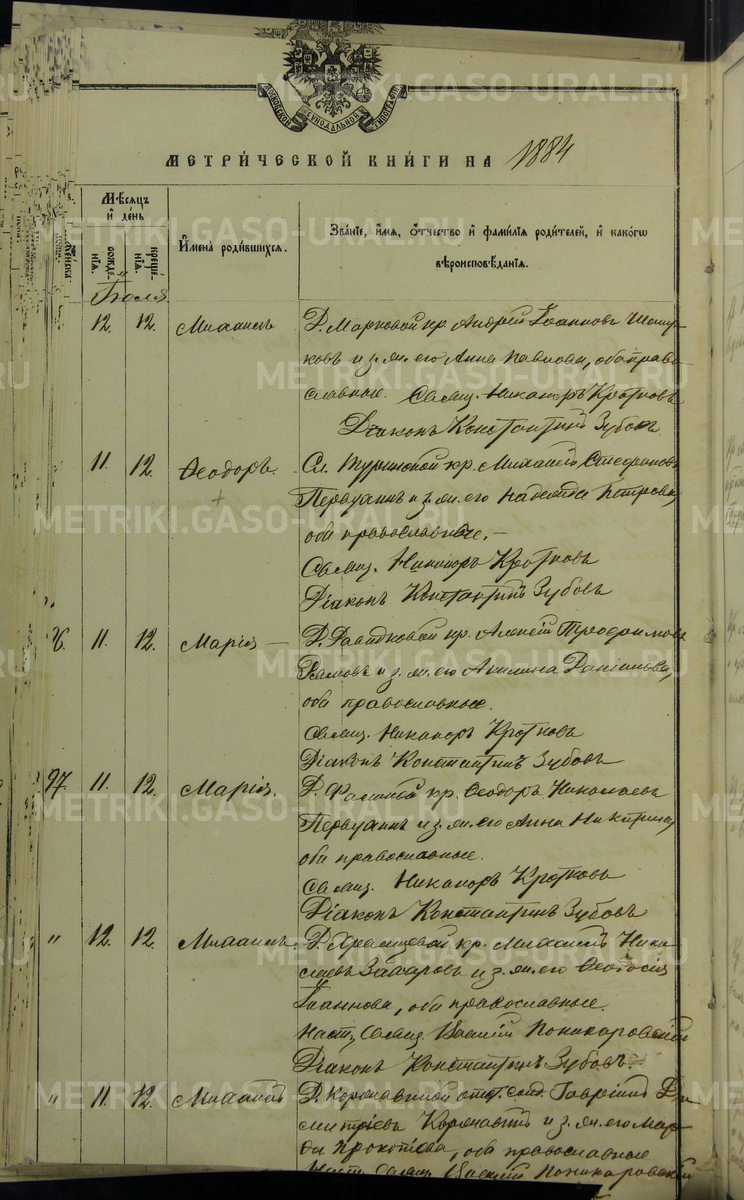 МОСКОВСКОЙ СѴНОДАЛЬНОЙ ТИПОГРАФІИ
METRIKI.GASO-URAL.RU
МЕТРИЧЕСКОЙ КНИГИ НА 1884
Мѣсяцъ и день
рожденія.
крещенія.
Имена родившихся.
Званіе, имя, отчество и фамилія родителей, и какогѡ вѣроисповѣданія.
Іюля
12. 12. Михаилъ
Д. Марковой кр. Андрей Іоанновъ
ковъ и з. ж. его Анна Павлова, оба право
славные. Свящ. Никаноръ Кротковъ
Діаконъ Константинъ Зубовъ.
11. 12. Ѳеодоръ.
Сл. Туринской кр. Михаилъ Стефановъ
Первухинъ и з. ж. его Надежда Петрова,
оба православные.
Свящ. Никаноръ Кротковъ
Діаконъ Константинъ Зубовъ
11. 12. Марія —
Д. Давыдковой кр. Алексій Трофимовъ
и з. ж. его Акилина
оба православные.
Свящ. Никаноръ Кротковъ
Діаконъ Константинъ Зубовъ
97. 11. 12. Марія.
Д. кр. Ѳеодоръ Николаевъ
Первухинъ и з. ж. его Анна Никитина,
оба православные.
Свящ. Никаноръ Кротковъ
Діаконъ Константинъ Зубовъ
" 12. 12. Михаилъ.
Д. Храмцовой кр. Михаилъ Нико
лаевъ Захаровъ и з. ж. его Ѳеодосія
Іоаннова, оба православные.
Наст. Свящ. Василій Поникаровскій
Діаконъ Константинъ Зубовъ.
" 11. 12. Михаилъ
Д. Корчавиной Гавріилъ Ди
митріевъ Корчавинъ и з. ж. его Мар
ѳа Прокопіева, оба православные
Наст. Свящ. Василій Поникаровскій